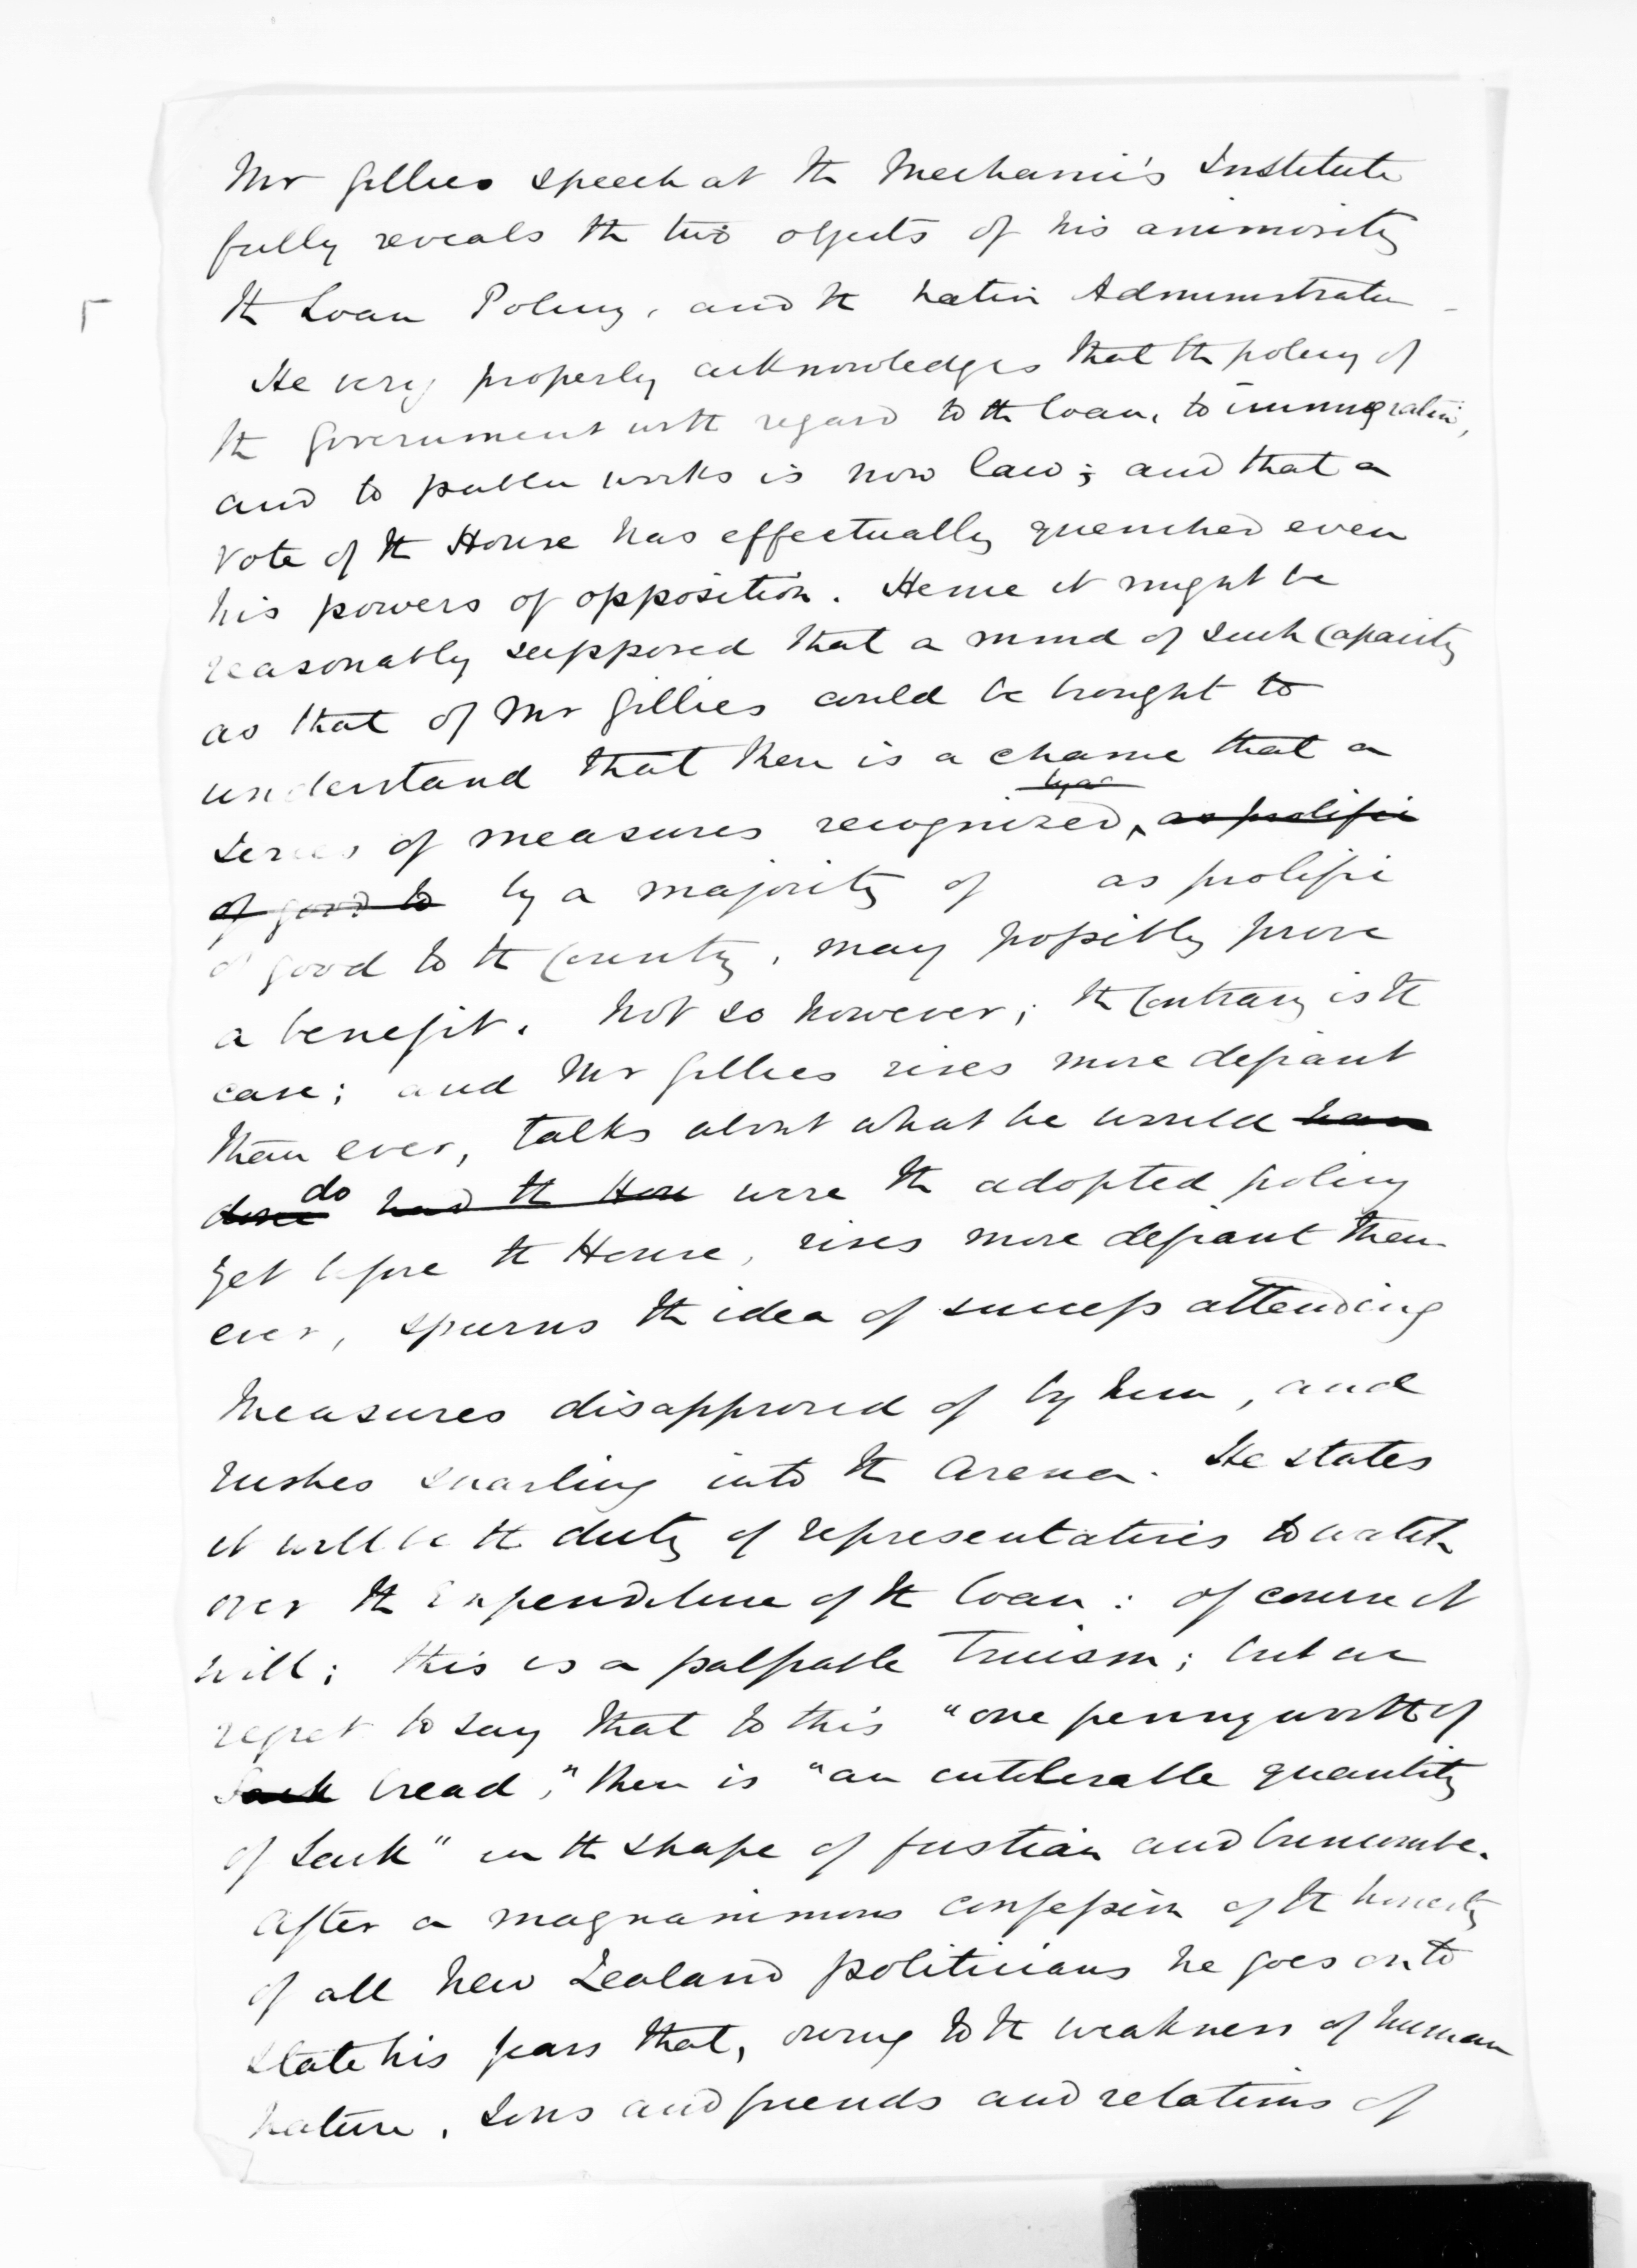 Mr Gillies speech at the Mechanic's Institute
fully reveals the two objects of his animosity
the Loan Policy, and the Native Administration -
He very properly acknowledges that the policy of
the Government with regard to the loan, to immigration,
and to public works is now law; and that a
vote of the House has effectually quenched even
his powers of opposition. Hence it might be
reasonably supposed that a mind of such capacity
as that of Mr Gillies could be brought to
understand that there is a chance that a
by a
series of measures recognized, as prolific
of good to by a majority of as prolific
of good to the Country, may possibly prove
a benefit. Not so however; the Contrary is the
case; and Mr Gillies rises more defiant
than ever, talks about what he would have
done do had the House were the adopted policy
yet before the House, rises more defiant than
ever, spurns the idea of success attending
measures disapproved of by him, and
rushes snarling into the arena. He states
it will be the duty of representatives to watch
over the Expenditure of the loan: of course it
will; this is a palpable Truism; but we
regret to say that to this "one pennyworth of
Sack bread," there is "an intolerable quantity
of Sack" in the shape of fustian and buncombe.
After a magnanimous confession of the honesty
of all New Zealand politicians he goes on to
state his fears that, owing to the weakness of human
nature, sons and friends and relations of